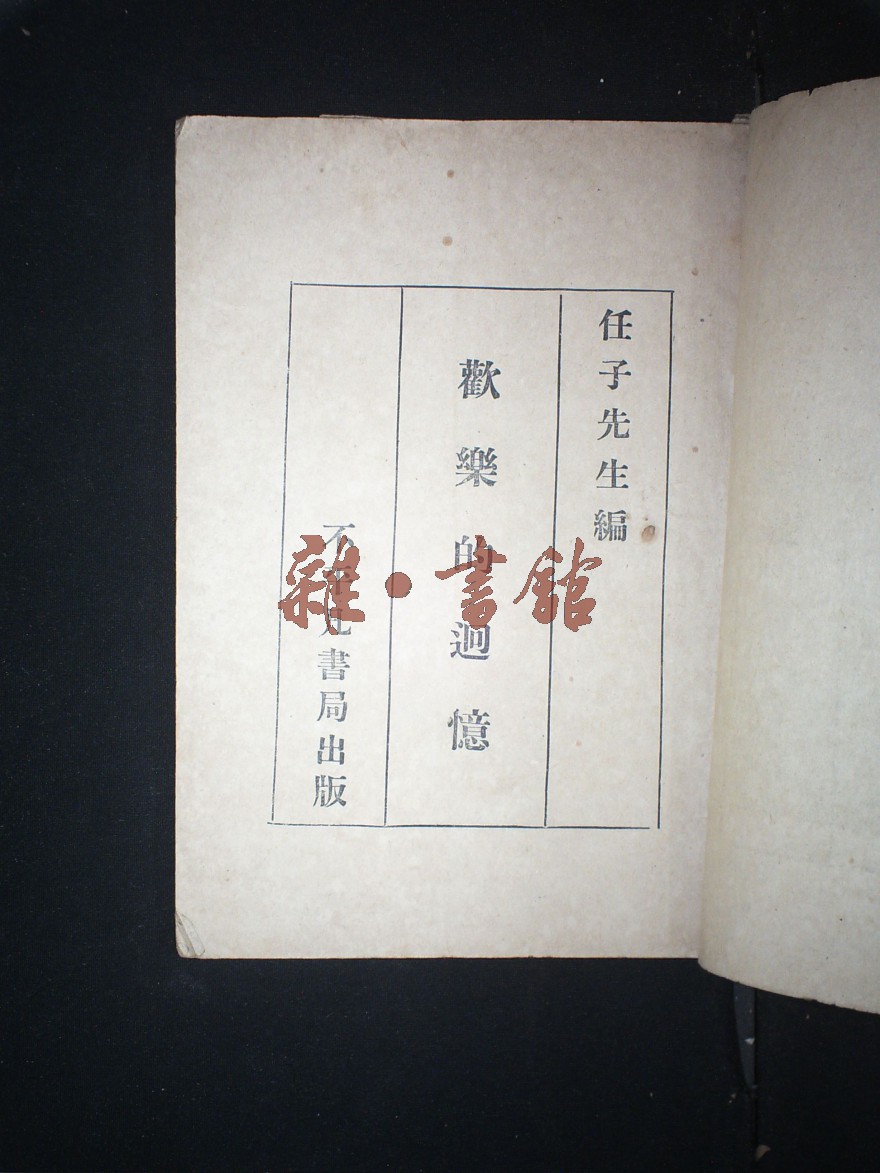 任子先生編
歡樂的迴憶
書局出版
雜•書館